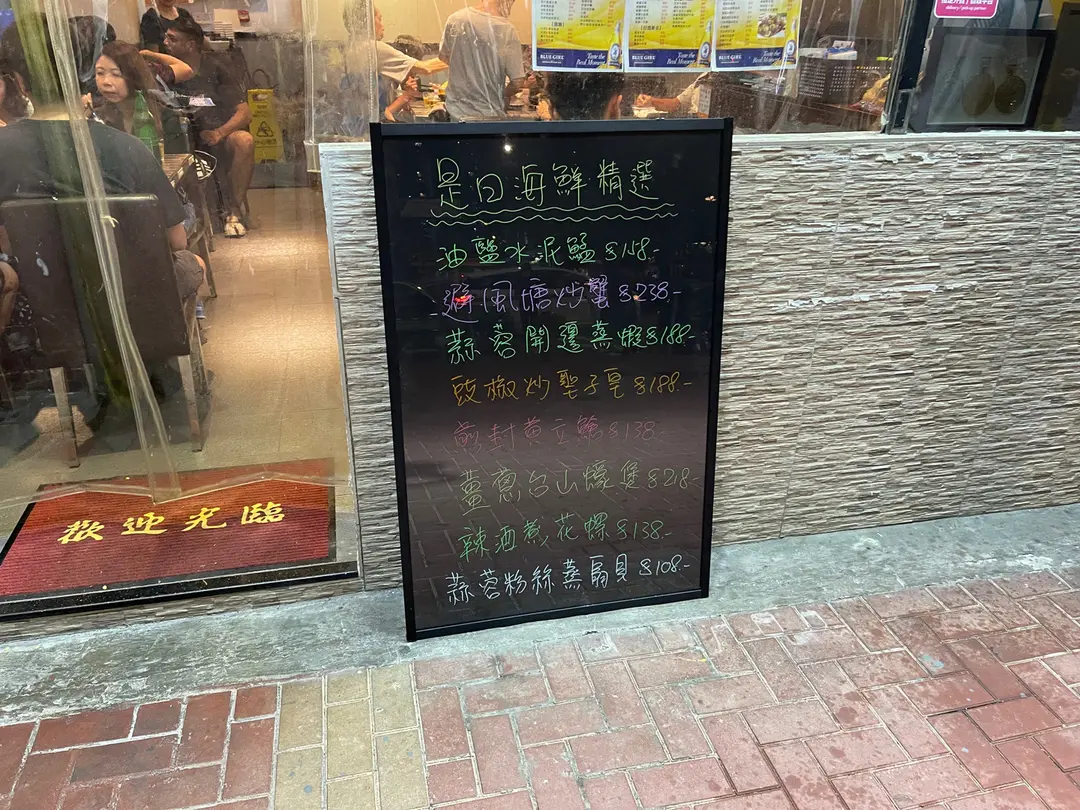 BLUE GIRL
Taste the
Real Moment
Taste the
Real Moment
delivery / pick-up partner
是日海鮮精選
油鹽水泥鯭$158.-
避風塘炒蟹$238.-
蒜蓉開邊蒸蝦$188.-
豉椒炒聖子皇$188.-
煎封黃立鯧$138.-
薑蔥台山蠔煲$218.-
辣酒煮花螺$138.-
蒜蓉粉絲蒸扇貝$108.-
歡迎光臨